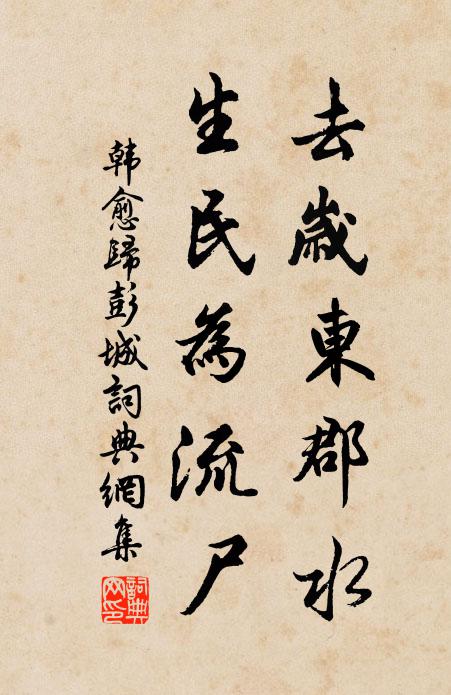 去歲東郡水
生民為流尸
韓愈歸彭城詞典網集
詞典網印